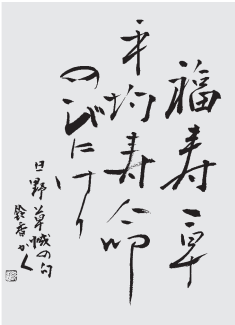 福寿草
平均寿命
のびにけり
日野草城の句
鈴香かく